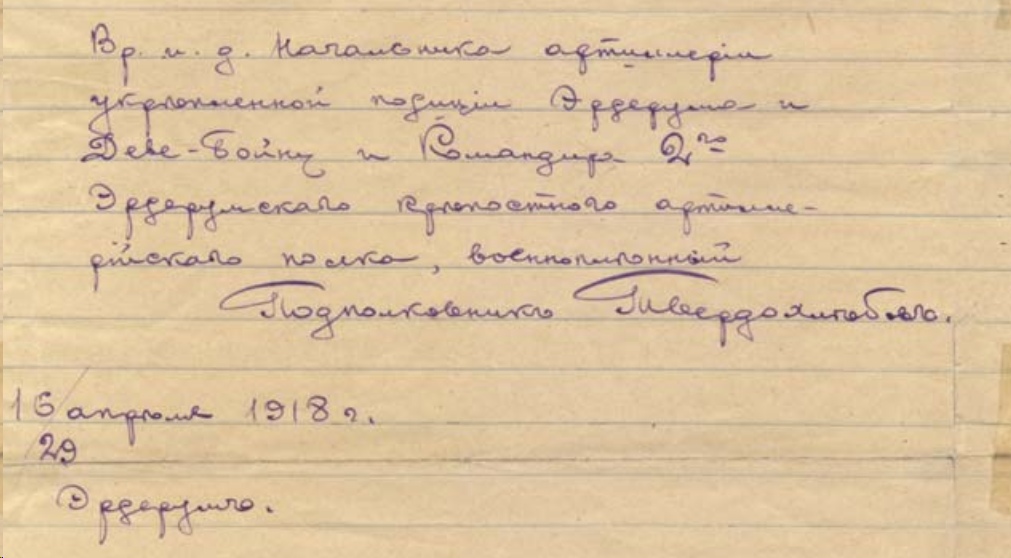 Вр. и. д. Начальника артиллеріи
укрѣпленной позиціи Эрзерума и
Деве-Бойну и Командиръ 2го
Эрзерумскаго крѣпостного артилле-
рійскаго полка, военноплѣнный
Подполковникъ Твердохлѣбовъ.
16 апрѣля 1918 г.
29
Эрзерумъ.